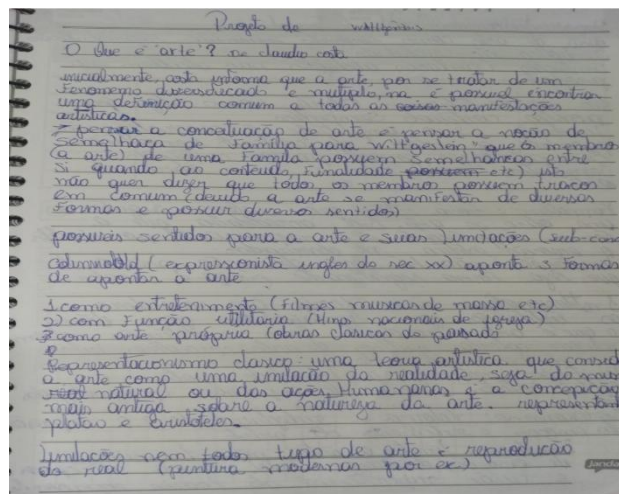 Projeto de
O que é 'arte'? de claudio costa
inicialmente, costa informa que a arte, por se tratar de um
Fenomeno diversificado e multiplo, na é possivel encontrar
uma definição comum a todas as manifestações
artisticas.
pensar a conceituação de arte é pensar a noção de
Semelhaça de Familia para Wittgestein "que os membros
(a arte) de uma Familia possuem Semelhanças entre
Si quando ao conteudo, Funalidade possuem etc) isto
não quer dizer que todos os membros possuem traços
em comum (devido a arte se manifestar de diversas
Formas e possuir diversos sentidos)
possiveis sentidos para a arte e suas limitações (sub-conc
(expressionista ingles do sec xx) aponta 3 Formas
de apontar a arte
1 como entretenimento (Filmes musicas de massa etc)
2) com Função utilitaria (Hinos nacionais de igreja)
3 como arte própria (obras clasicas do passado
Representacionismo clasico: uma teoria artistica que consid
a arte como uma imitação da realidade, seja do mun
real natural ou das ações Humanas é a concepição
mais antiga sobre a natureza da arte. representan
platão e aristoteles.
Limitações nem todos tipo de arte é reprodução
do real (pintura modernas por ex)
jandaia